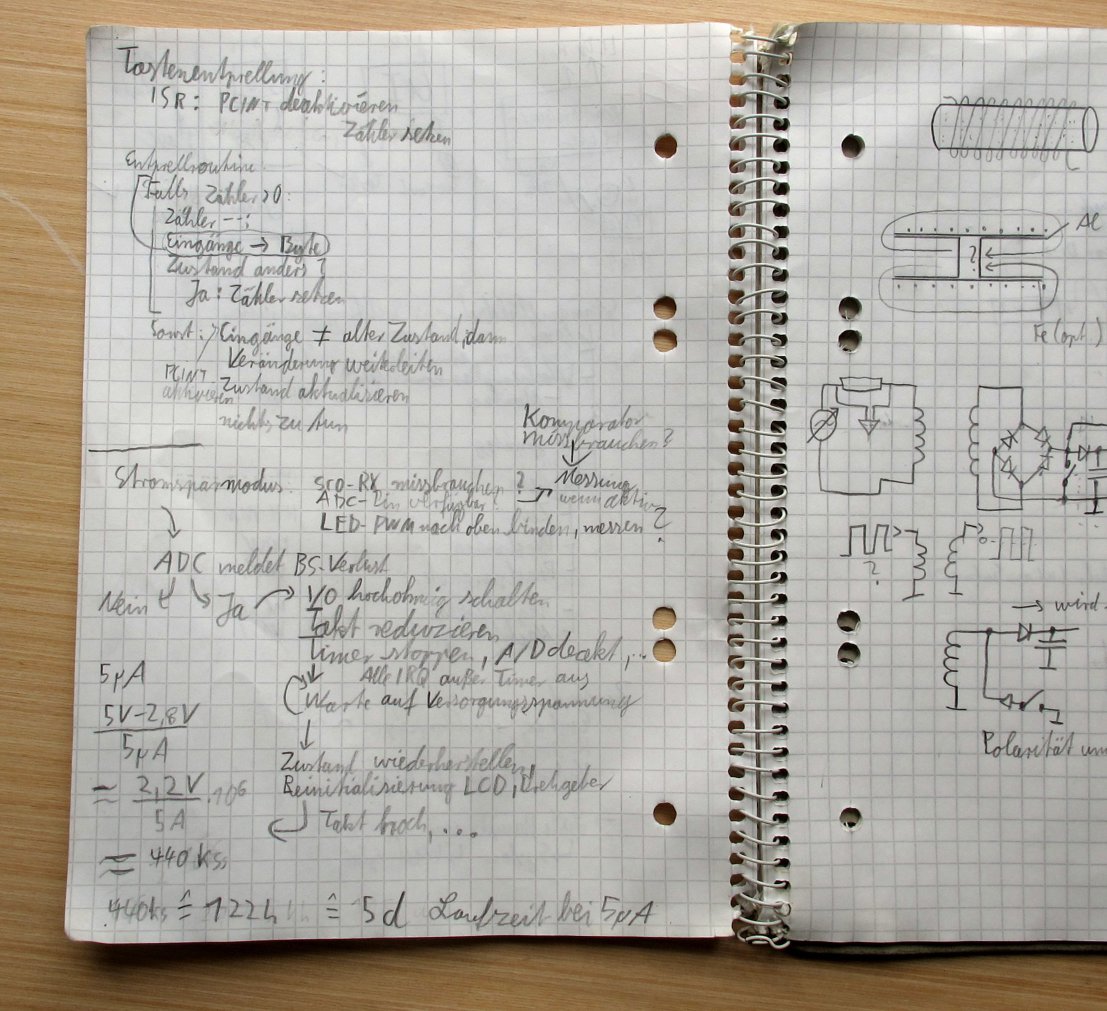 Tastenentprellung:
ISR: PCINT deaktivieren
Zähler setzen
Entprellroutine:
Falls Zähler > 0:
Zähler --;
Eingänge → Byte
Zustand anders?
Ja: Zähler setzen
Sonst: Eingänge ≠ alter Zustand, dann
Veränderung weiterleiten
PCINT aktivieren
Zustand aktualisieren
nichts zu tun
Komparator
missbrauchen?
Stromsparmodus:
-RX missbrauchen?
ADC-Pin verfügbar
Messung
wenn aktiv
LED-PWM nach oben binden, messen?
ADC meldet BS-Verlust
Nein
Ja
I/O hochohmig schalten
Takt reduzieren
Timer stoppen, A/D deakt, ...
Alle IRQ außer Timer aus
Warte auf Versorgungsspannung
Zustand wiederherstellen,
Reinitialisierung LCD, Drehgeber
Takt hoch, ...
5µA
5V-2,8V
5µA
= 2,2V · 10⁶
5A
= 440 ks
440ks ≙ 122h ≙ 5d Laufzeit bei 5µA
Al
?
Fe (opt.)
?
→ wird
Polarität um